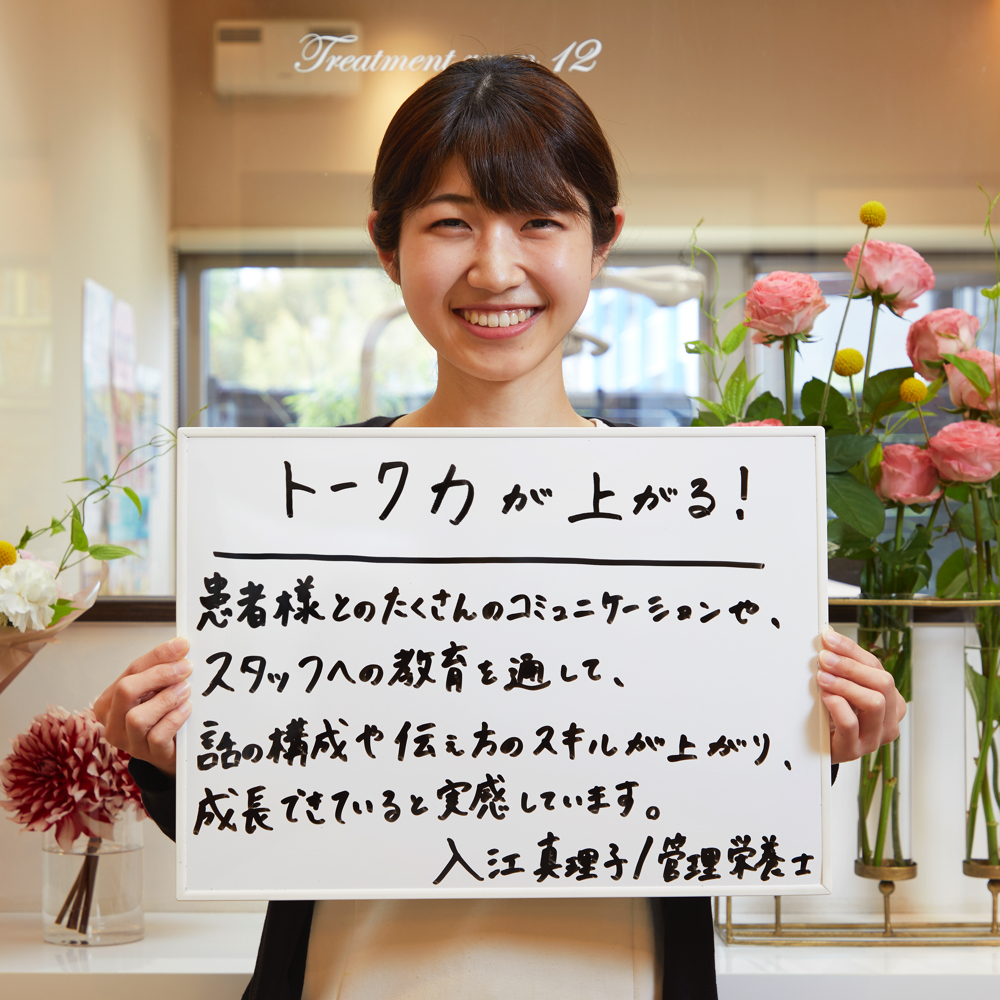 Treatment room 12
トーク力が上がる!
患者様とのたくさんのコミュニケーションや、
スタッフへの教育を通して、
話の構成や伝え方のスキルが上がり、
成長できていると実感しています。
入江真理子/管理栄養士